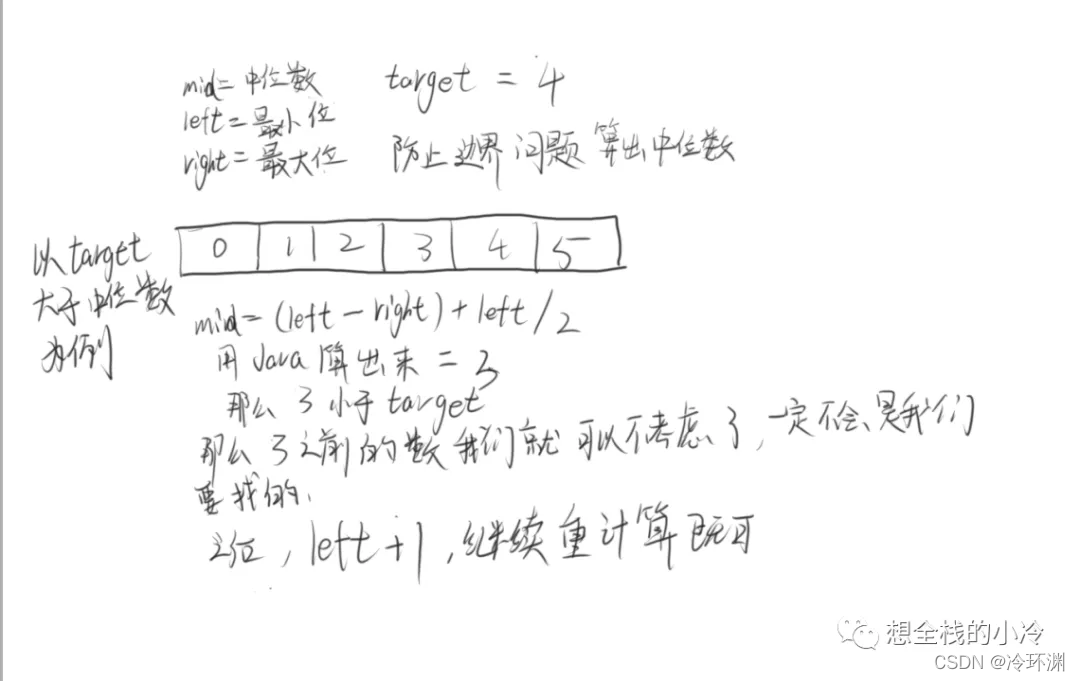 mid=中位数 target = 4
left=最小位
right=最大位 防止边界问题 算出中位数
以target
大于中位数
为例
0 1 2 3 4 5
mid=(left-right)+left/2
用Java算出来 = 3
那么 3 小于target
那么 3之前的数我们就可以不考虑了,一定不会是我们
要找的,
之位,left+1,继续重计算既可
想全栈的小冷
CSDN @冷环渊